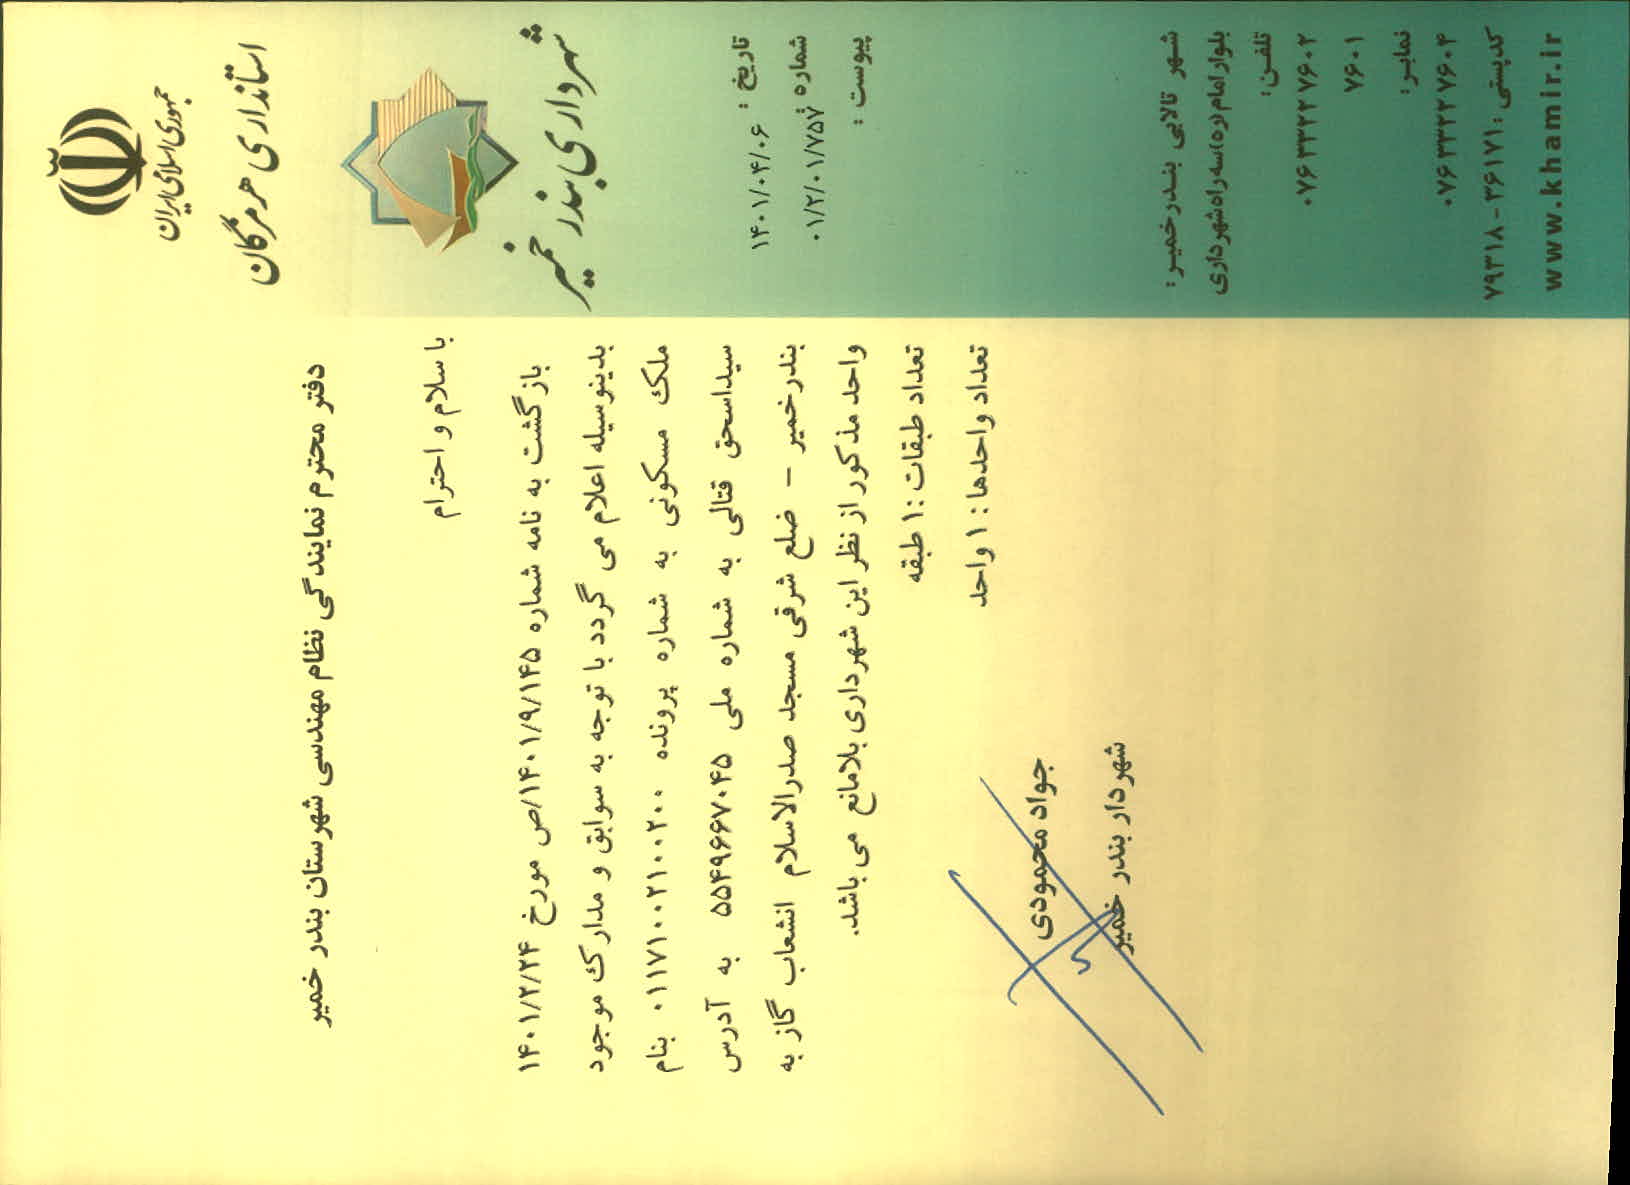 جمهوری اسلامی ایران
استانداری هرمزگان
شهرداری بندر خمیر
تاریخ : ۱۴۰۱/۰۴/۰۶
شماره : ۰۱/۲/۰۱/۷۵۷
پیوست :
شهر تالابی بندرخمیر:
بلوار امام(ره)سه راه شهرداری
تلفن:
۰۷۶۳۳۲۲۷۶۰۲
۷۶۰۱
نمابر:
۰۷۶۳۳۲۲۷۶۰۴
کدپستی: ۷۹۳۱۸-۳۶۱۷۱
www.khamir.ir
دفتر محترم نمایندگی نظام مهندسی شهرستان بندر خمیر
با سلام و احترام
بازگشت به نامه شماره ۱۴۰۱/۹/۱۴۵/ص مورخ ۱۴۰۱/۲/۲۴
بدینوسیله اعلام می گردد با توجه به سوابق و مدارک موجود
ملک مسکونی به شماره پرونده ۰۱۱۷۱۰۰۲۱۰۰۲۰۰ بنام
سیداسحق قتالی به شماره ملی ۵۵۴۹۶۶۷۰۴۵ به آدرس
بندرخمیر – ضلع شرقی مسجد صدرالاسلام انشعاب گاز به
واحد مذکور از نظر این شهرداری بلامانع می باشد.
تعداد طبقات :۱ طبقه
تعداد واحدها : ۱ واحد
جواد محمودی
شهردار بندر خمیر